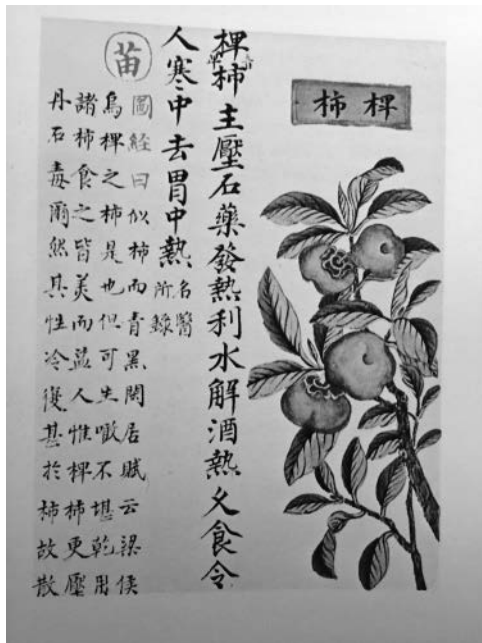 椑柿
椑音卑柿主壓石藥發熱利水解酒熱久食令
人寒中去胃中熱名醫所錄
苗
圖經曰似柿而青黑閑居賦云梁侯
烏椑之柿是也但可生噉不堪乾用
諸柿食之皆美而益人惟椑柿更壓
丹石毒爾然其性冷復甚於柿故散